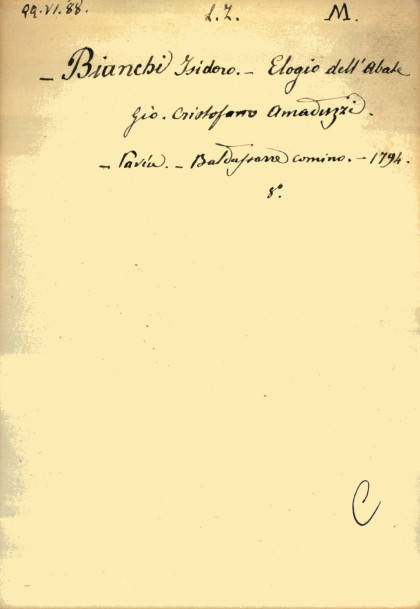 QQ.VI.88. L.Z. M.
– Bianchi Isidoro. – Elogio dell'Abate
Gio. Cristofano Amaduzzi.
– Pavia. – Baldassarre Comino. – 1794.
8°.
C